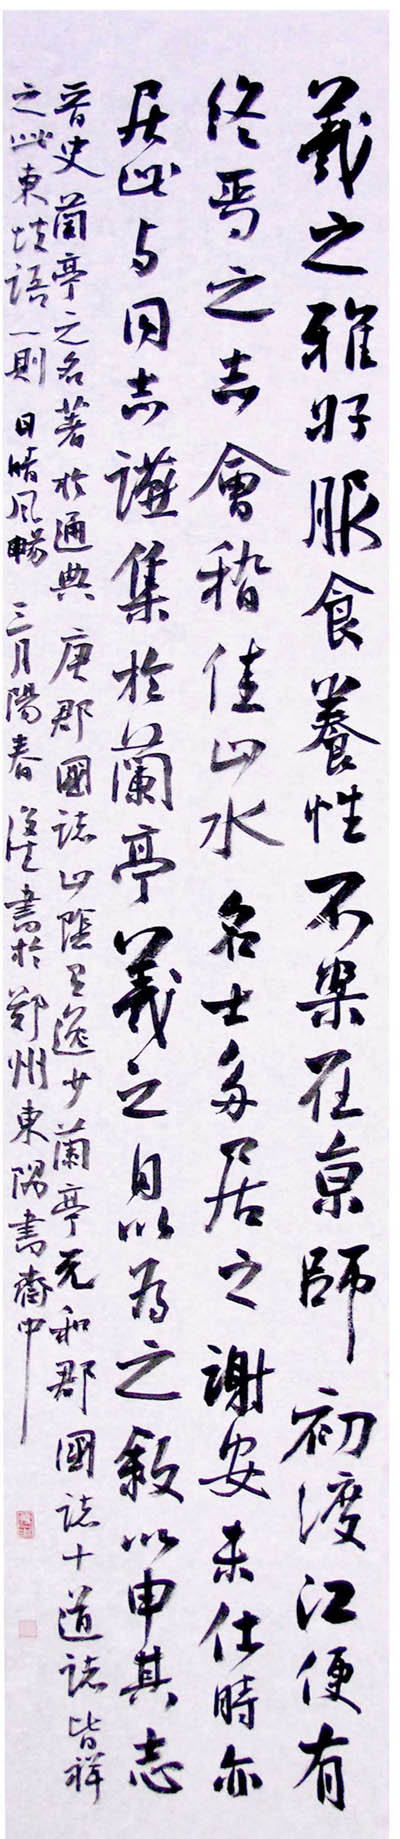 羲之雅好服食養性不樂在京師初渡江便有
終焉之志會稽佳山水名士多居之謝安未仕時亦
居此与同志讌集於蘭亭羲之自以為之叙以申其志
晉史蘭亭之名著於通典唐郡國誌山陰逸少蘭亭元和郡國誌十道誌皆祥
之此東坡語一則日晴風暢三月陽春書於鄭州東隅書齋中